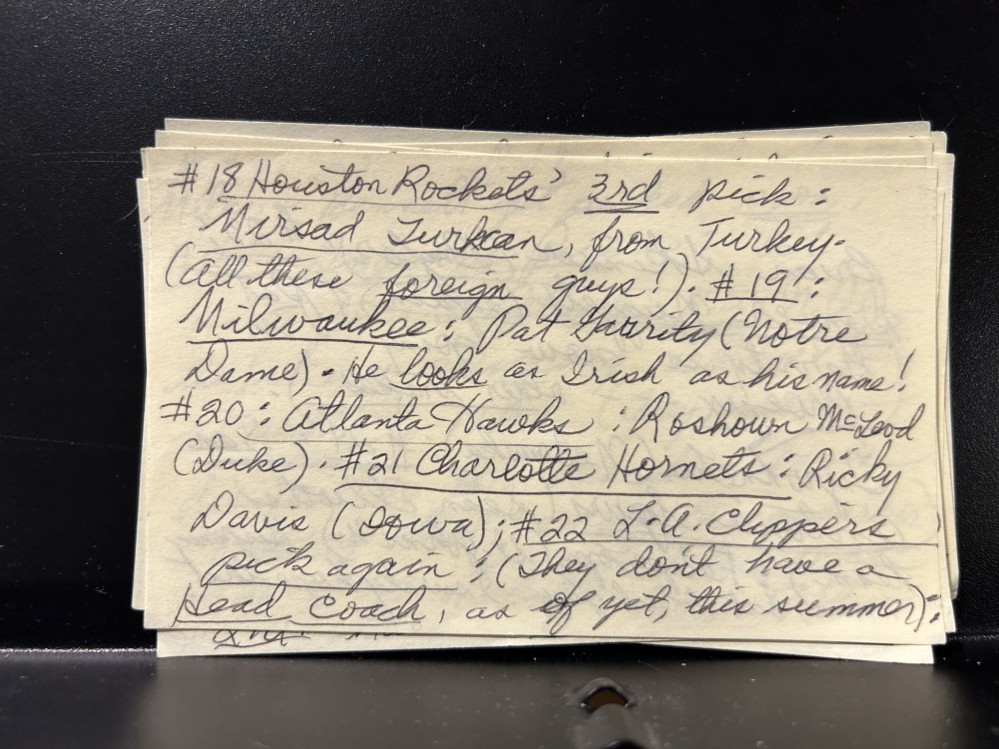 #18 Houston Rockets' 3rd pick:
Mirsad Turkcan, from Turkey.
(All these foreign guys!). #19:
Milwaukee: Pat Garrity (Notre
Dame). He looks as Irish as his name!
#20: Atlanta Hawks: Roshown McLeod
(Duke). #21 Charlotte Hornets: Ricky
Davis (Iowa); #22 L.A. Clippers
pick again: (They don't have a
Head Coach, as of yet, this summer):